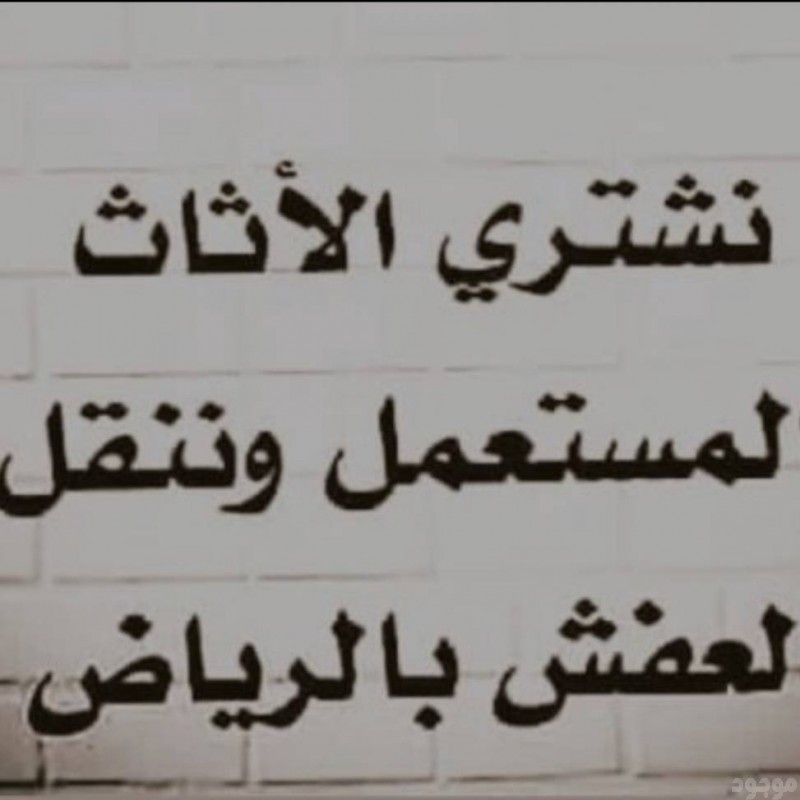 نشتري الأثاث
المستعمل وننقل
لعفش بالرياض
موجود